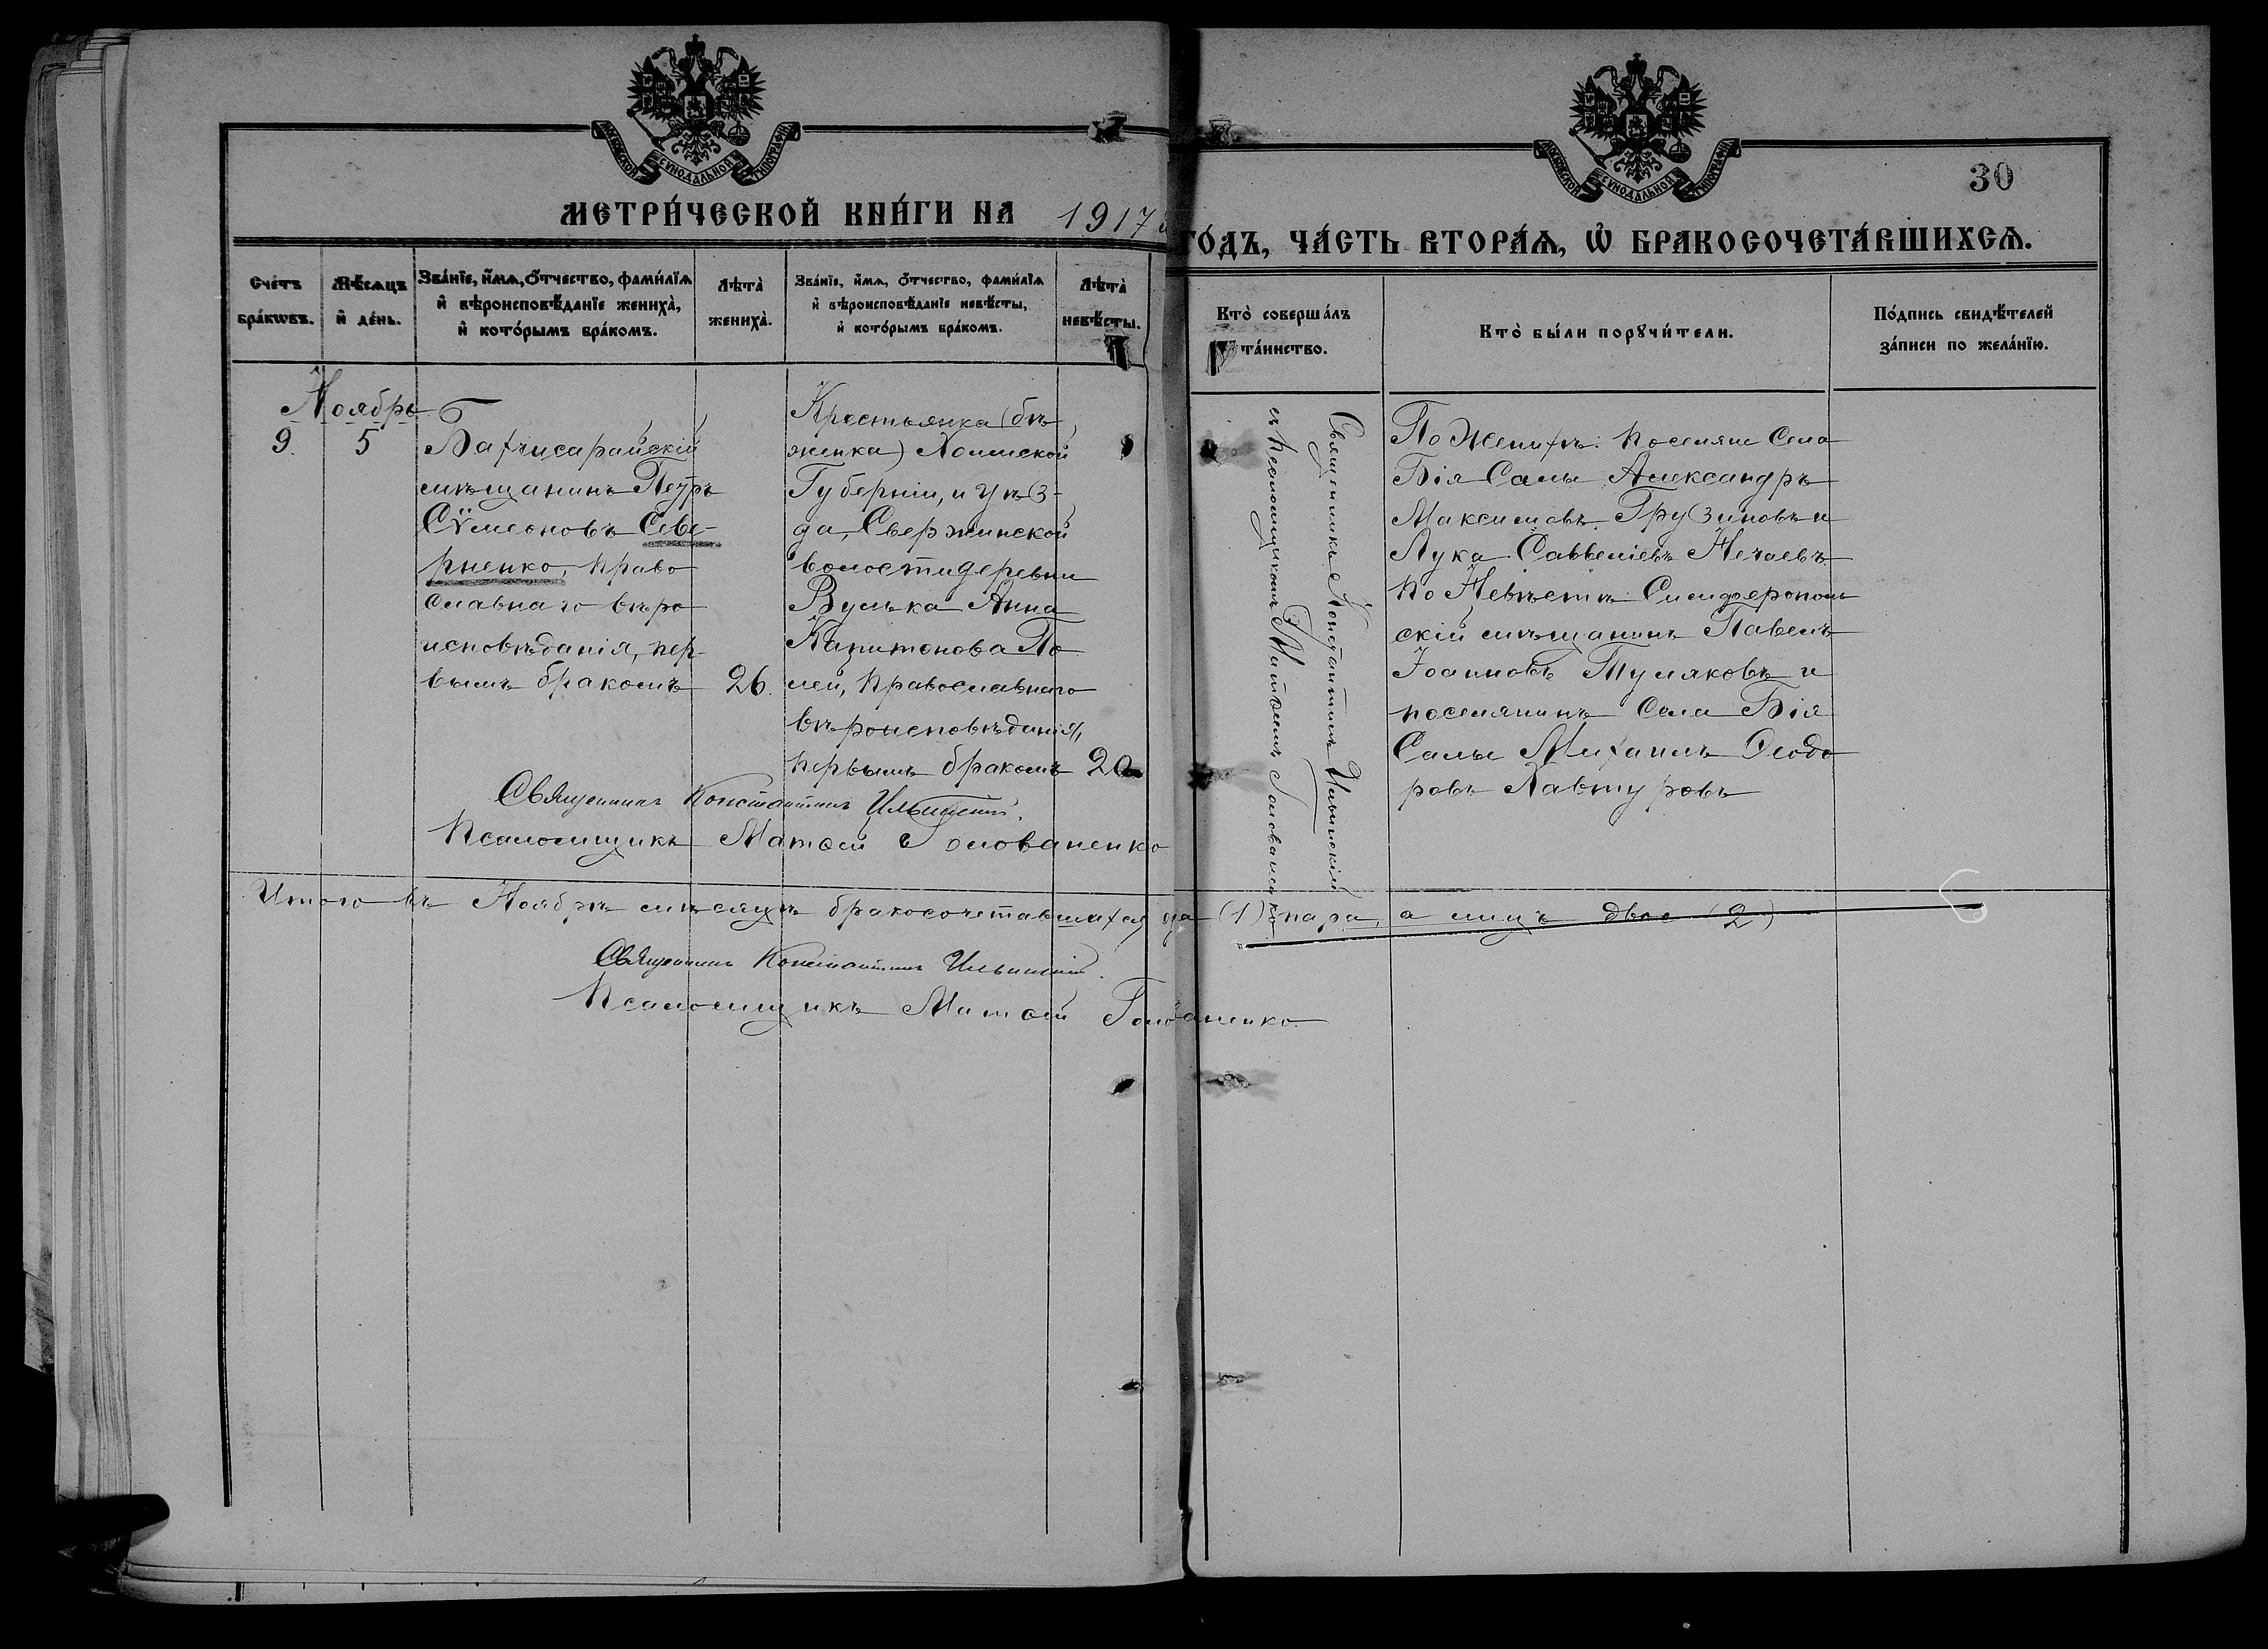 МОСКОВСКОЙ СѴНОДАЛЬНОЙ ТИПОГРАФІИ
МОСКОВСКОЙ СѴНОДАЛЬНОЙ ТИПОГРАФІИ
30
МЕТРИ́ЧЕСКОЙ КНИ́ГИ НА 1917
ГО́ДЪ, ЧА́СТЬ ВТОРА́Ѧ, Ѡ҆ БРАКОСОЧЕТА́ВШИХСѦ.
Сче́тъ
бра́кѡвъ.
Мѣ́сѧцъ
и҆ де́нь.
Зва́нїе, и҆́мѧ, ѻ҆́тчество, фами́лїѧ
и҆ вѣроисповѣ́данїе жениха̀,
и҆ кото́рымъ бра́комъ.
Лѣта̀
жениха̀.
Зва́нїе, и҆́мѧ, ѻ҆́тчество, фами́лїѧ
и҆ вѣроисповѣ́данїе невѣ́сты,
и҆ кото́рымъ бра́комъ.
Лѣта̀
невѣ́сты.
Кто̀ соверша́лъ
та́инство.
Кто̀ бы́ли порꙋчи́тели.
По́дпись свидѣ́телей
за́писи по жела́нїю.
Ноябрь
9. 5
Бахчисарайскій
мѣщанинъ Петръ
Сѵмеоновъ Севе-
рненко, право
славнаго вѣро
исповѣданія, пер-
вымъ бракомъ 26.
Крестьянка (бѣ-
женка) Холмской
Губерніи, и уѣз-
да, Свержинской
волости деревни
Вулька Анна
Капитонова По
лей, православнаго
вѣроисповѣданія,
первымъ бракомъ 20
Священникъ Константинъ Ильинскій
съ псаломщикомъ МатѳеемъГолованенко
По Женихѣ: поселяне села
Бія Салы Александръ
Максимовъ Грузиновъ и
Лука Савельевъ Нечаевъ.
По Невѣстѣ Симферополь
скій мѣщанинъ Павелъ
Іоанновъ Тумяковъ и
поселянинъ села Бія
Салы Михаилъ Ѳеодо
ровъ Кавтуровъ
Священникъ Константинъ Ильинскій.
Псаломщикъ Матѳей Голованенко
Итого въ Ноябрѣ мѣсяцѣ бракосочетавшихся (1) пара, а лицъ двое (2)
Священникъ Константинъ Ильинскій.
Псаломщикъ Матѳей Голованенко